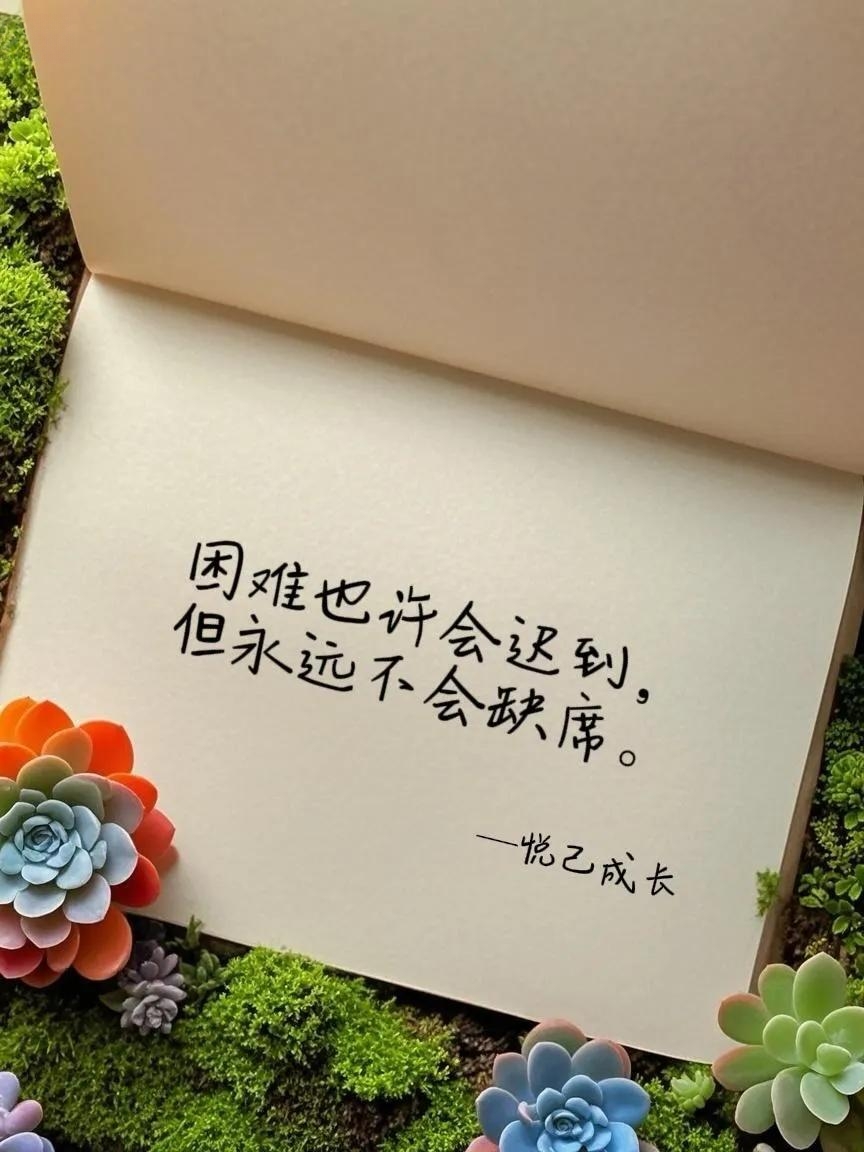 困难也许会迟到，
但永远不会缺席。
—悦己成长